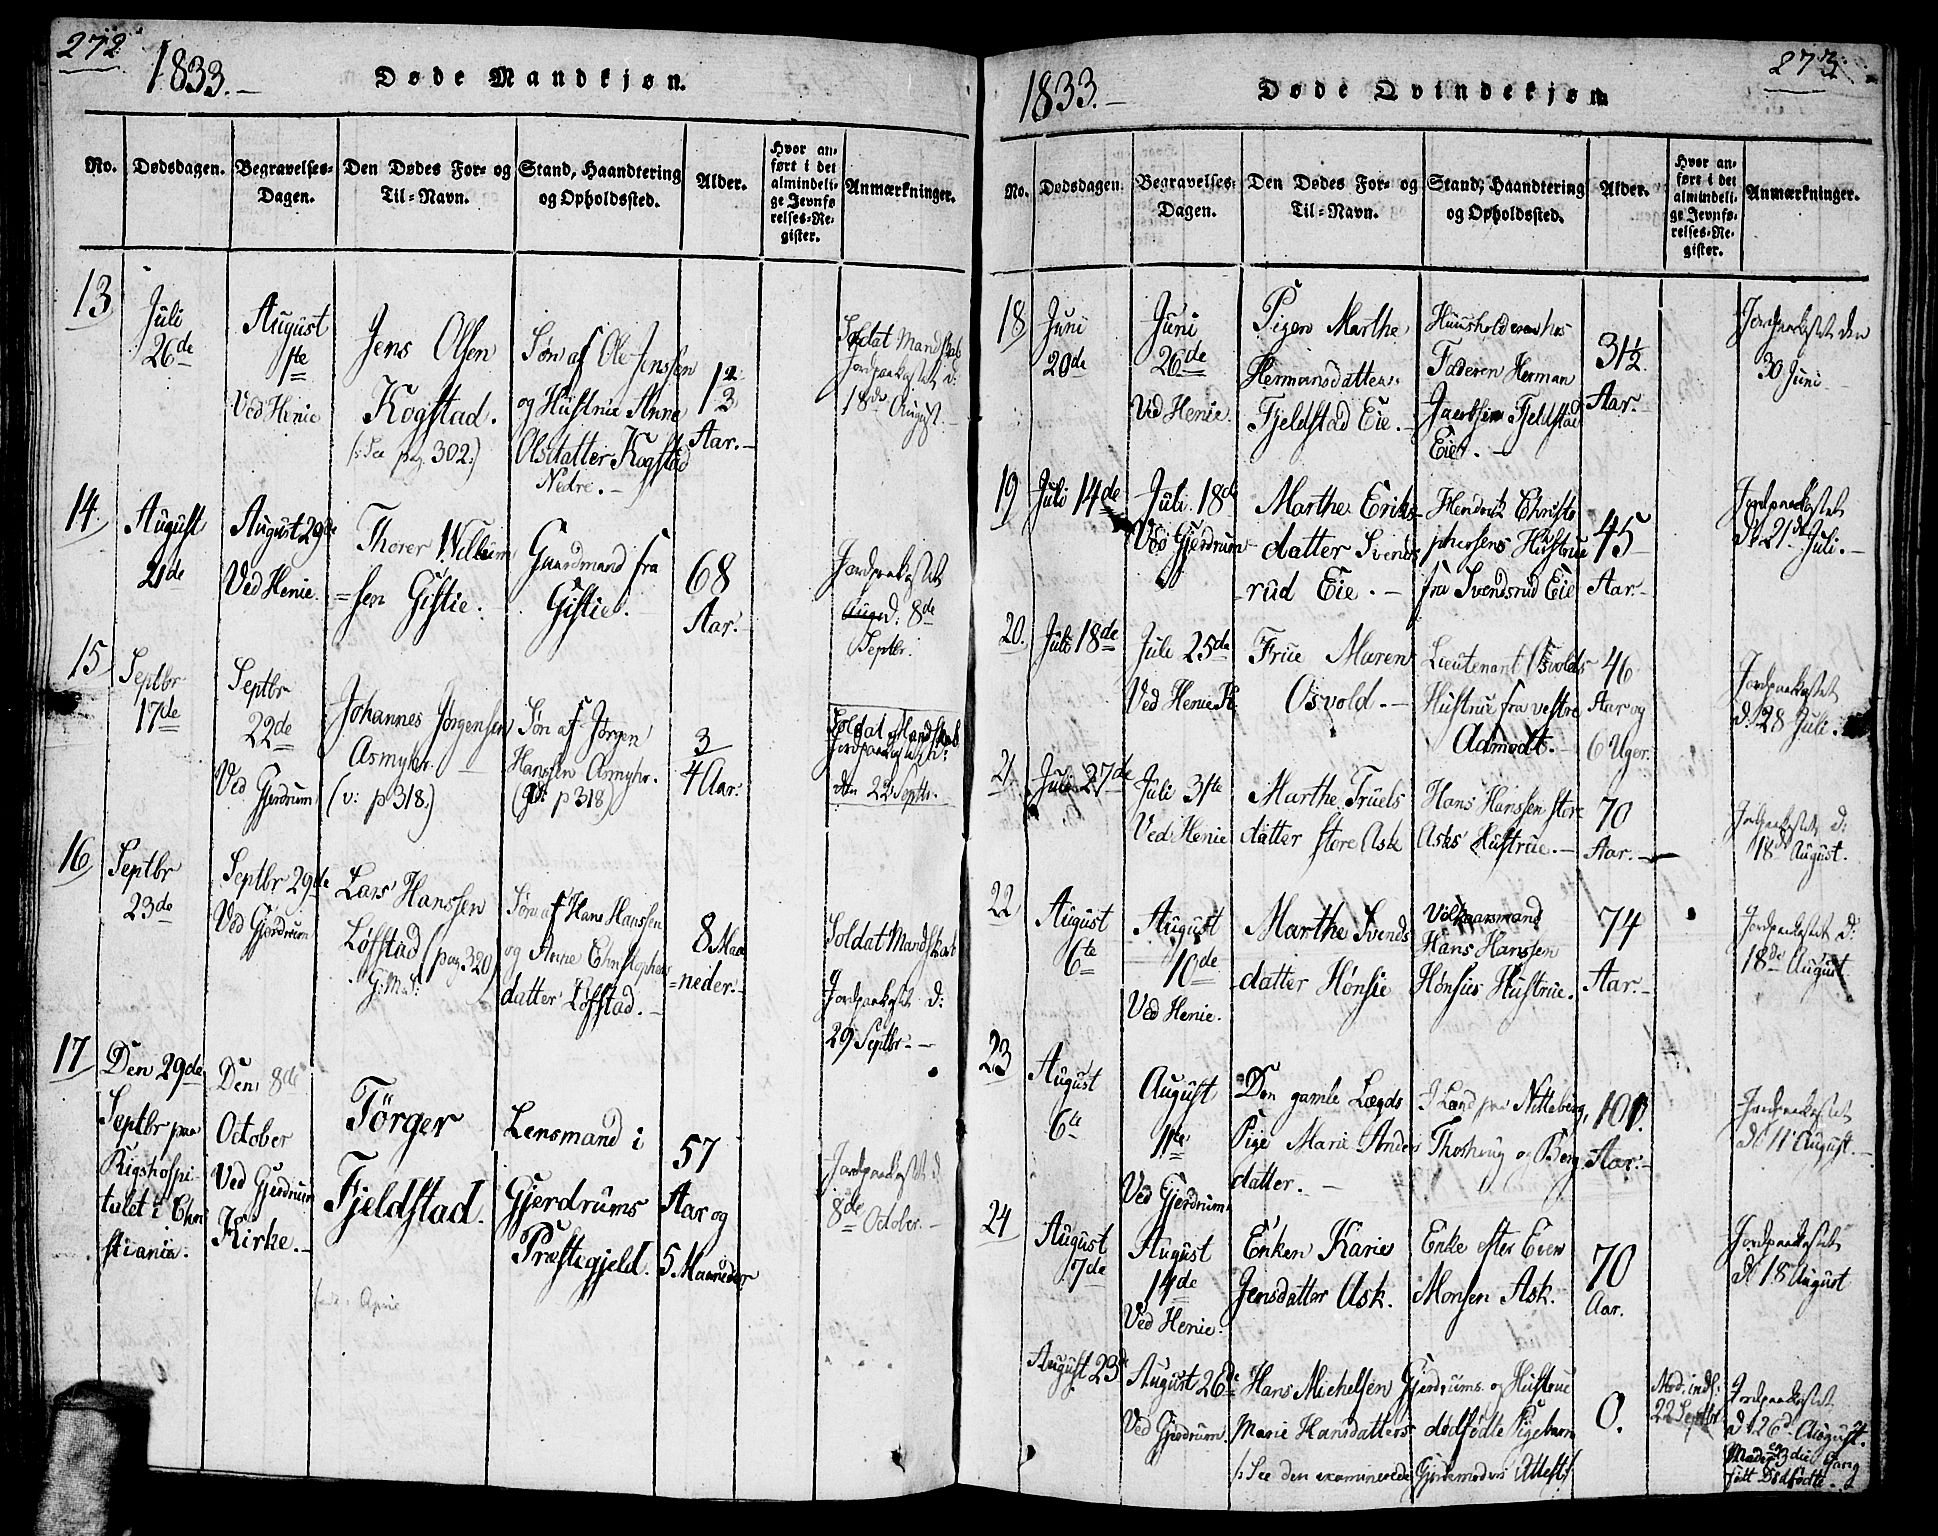 272.
1833.
Døde Mandkjøn.
No.
Dødsdagen.
Begravelses-
Dagen.
Den Dødes For- og
Til-Navn.
Stand, Haandtering
og Opholdssted.
Alder.
Hvor an-
ført i det
almindeli-
ge Jevnfø
relses-Re-
gister.
Anmærkninger.
13
Juli
26de
August
1te
Ved Henie
Jens Olsen
Kogstad.
(: See pag. 302:)
Søn af Ole Jenssen
og Hustrue Anne
Olsdatter Kogstad
Nedre.
Aar.
Soldat Mandskab
Jordpaakastet d:
18de August.
14
August
21de
August 29de
Ved Henie.
Thorer Willum
=sen Gistie.
Gaardmand fra
Gistie.
68
Aar.
Jordpaakastet
d: 8de
Septbr.
15
Septbr
17de
Septbr
22de
Ved Gjerdrum
Johannes Jørgensen
Asmyhr.
(v: p 318.)
Søn af Jørgen
Hanssen Asmyhr.
p 318.)
3/4 Aar.
Soldat Mandskab
Jordpaakastet
den 22 Septbr.
16
Septbr
23de
Septbr 29de
Ved Gjerdrum
Lars Hanssen
Løfstad (pag. 320)
Søn af Hans Hanssen
og Anne Christophers
datter Løfstad.
8 Maa
=neder.
Soldat Mandskab
Jordpaakastet d:
29 Septbr.
17
Den 29de
Septbr paa
Rigshospi-
talet i Chri
stiania.
Den 8de
October
Ved Gjerdrum
Kirke.
Tørger
Fjeldstad.
Lensmand i
Gjerdrums
Præstegjeld.
57
Aar og
5 Maaneder
Jordpaakastet d
8de October.
273.
1833.
Døde Qvindekjøn
No.
Dødsdagen.
Begravelses-
Dagen.
Den Dødes For- og
Til-Navn.
Stand, Haandtering
og Opholdssted.
Alder.
Hvor an-
ført i det
almindeli-
ge Jevnfø-
relses-Re-
gister.
Anmærkninger.
18
Juni
20de
Juni
26de
Ved Henie.
Pigen Marthe
Hermansdatter
Fjeldstad Eie.
Huusholderen hos
Faderen Herman
Jacobsen Fjeldstad
Eie.
31½
Aar.
Jordpaakastet den
30 Juni
19
Juli 14de
Juli 18de
Ved Gjerdrum
Marthe Eriks-
datter Svends
-rud Eie.
Hendrik Christo
phersens Hustrue
fra Svendsrud Eie
45
Aar.
Jordpaakastet
d. 21de Juli.
20.
Juli 18de
Juli 25de
Ved Henie K.
Frue Maren
Osvold.
Lieutenant Osvolds
Hustrue fra vestre
Aamodt.
46
Aar og
6 Uger.
Jordpaakastet
d. 28 Juli.
21
Juli 27de
Juli 31te
Ved Henie
Marthe Truels
datter store Ask
Hans Hanssen store
Asks Hustrue.
70
Aar.
Jordpaakastet d:
18de August.
22
August
6te
August
10de
Ved Henie.
Marthe Svends
datter Hønsie
Vilkaarsmand
Hans Hanssen
Hønsies Hustrue.
74
Aar.
Jordpaakastet d:
18de August
23
August
6te
August
11te
Ved Gjerdrum
Den gamle Lægds
Pige Marie Anders
datter.
I Lægd paa Nitteberg,
Thoshoug og Berg.
101.
Aar.
Jordpaakastet
d. 11 August.
24
August
7de
August
14de
Ved Henie.
Enken Karie
Jensdatter Ask.
Enke efter Even
Monsen Ask.
70
Aar.
Jordpaakastet
d. 18 August
August 23de
August 26de
Ved Gjerdrum.
Hans Michelsen Gjerdrums og Hustrue
Marie Hansdatters dødfødte Pigebarn
(: See den examinerede Gjordemoders Attest:)
0.
Mod. indl:
22 Septbr.
Jordpaakastet
d. 26de August.
Moder 3die Gang
født Dødfødte.